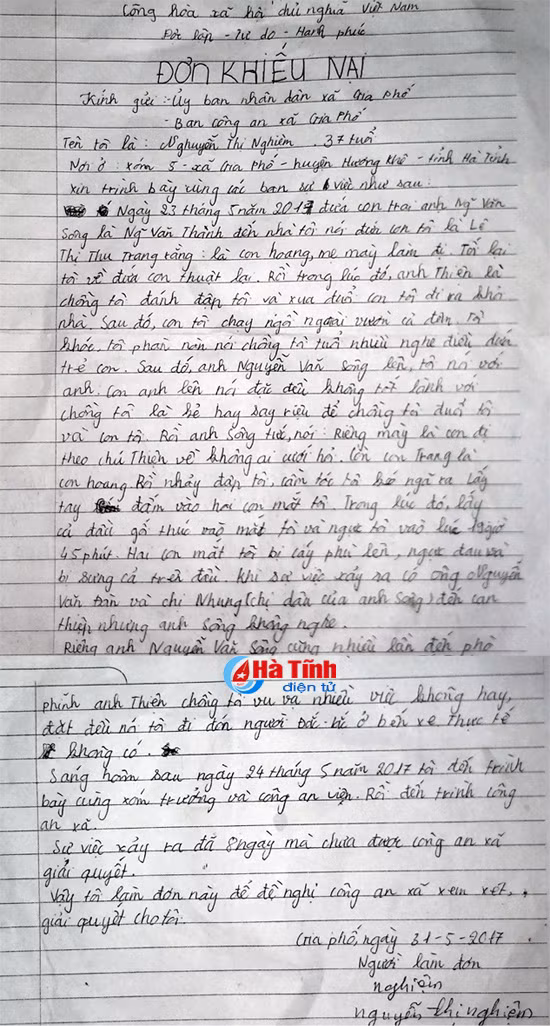 Cộng hòa xã hội chủ nghĩa Việt Nam
Độc lập - Tự do - Hạnh phúc
ĐƠN KHIẾU NẠI
Kính gửi: - Ủy ban nhân dân xã Gia Phố
- Ban công an xã Gia Phố
Tên tôi là: Nguyễn Thị Nghiêm. 37 tuổi
Nơi ở: xóm 5 - xã Gia Phố - huyện Hương Khê - tỉnh Hà Tĩnh
xin trình bày cùng các ban sự việc như sau:
Ngày 23 tháng 5 năm 2017 đứa con trai anh Ng Văn
Song là Ng Văn Thành đến nhà tôi nói đứa con tôi là Lê
Thị Thu Trang rằng: là con hoang, mẹ mày làm đị. Tối lại
tôi về đứa con thuật lại. Rồi trong lúc đó, anh Thiên là
chồng tôi đánh đập tôi và xua đuổi con tôi đi ra khỏi
nhà. Sau đó, con tôi chạy ngồi ngoài vườn cả đêm.
khóc, tôi phàn nàn nói chồng tôi nhiều nghe điều
trẻ con. Sau đó, anh Nguyễn Văn Song lên, tôi nói với
anh. Con anh lên nói đặt đều không tốt lành với
chồng tôi là kẻ hay say rượu để chồng tôi đuổi tôi
và con tôi. Rồi anh Song tức, nói: Riêng mày là con đị
theo chú Thiện về không ai cưới hỏi. Còn con Trang là
con hoang. Rồi nhảy đạp tôi, cầm tóc tôi ngã ra lấy
tay đấm vào hai con mắt tôi. Trong lúc đó, lấy
cả đầu gố thúc vào mặt tôi và ngực tôi vào lúc 19 giờ
45 phút. Hai con mắt tôi bị cấy phù lên, ngực đau và
bị sưng cả trên đầu. Khi sự việc xảy ra có ông Nguyễn
Văn Đàn và chị Nhung (chị dâu của anh Song) đến can
thiệp nhưng anh Song không nghe.
Riêng anh Nguyễn Văn Song cũng nhiều lần đến phò
Hà Tĩnh
điện tử
phỉnh anh Thiên chồng tôi vu vạ nhiều việc không hay,
đặt đều nó tôi đi đón người Bắc - ở bến xe Thực tế
không có.
Sang hôm sau ngày 24 tháng 5 năm 2017 tôi đến trình
bày cùng xóm trưởng và công an viên. Rồi đến trình công
an xã.
Sự việc xảy ra đã 8 ngày mà chưa được công an xã
giải quyết.
Vậy tôi làm đơn này để đề nghị công an xã xem xét,
giải quyết cho tôi.
Gia phố, ngày 31-5-2017
Người làm đơn
nghiêm
nguyễn thị nghiêm